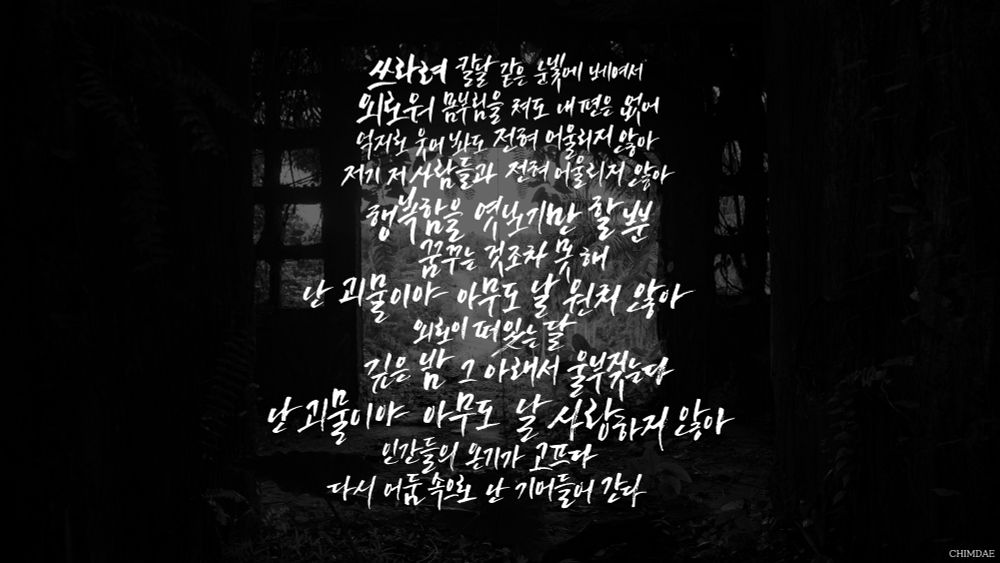 쓰라려 칼날 같은 눈빛에 베여서
외로워 몸부림을 쳐도 내 편은 없어
억지로 웃어 봐도 전혀 어울리지 않아
저기 저 사람들과 전혀 어울리지 않아
행복함을 엿보기만 할 뿐
꿈꾸는 것조차 못 해
난 괴물이야 아무도 날 원치 않아
외로이 떠있는 달
깊은 밤 그 아래서 울부짖는다
난 괴물이야 아무도 날 사랑하지 않아
인간들의 온기가 고프다
다시 어둠 속으로 난 기어들어 간다
CHIMDAE